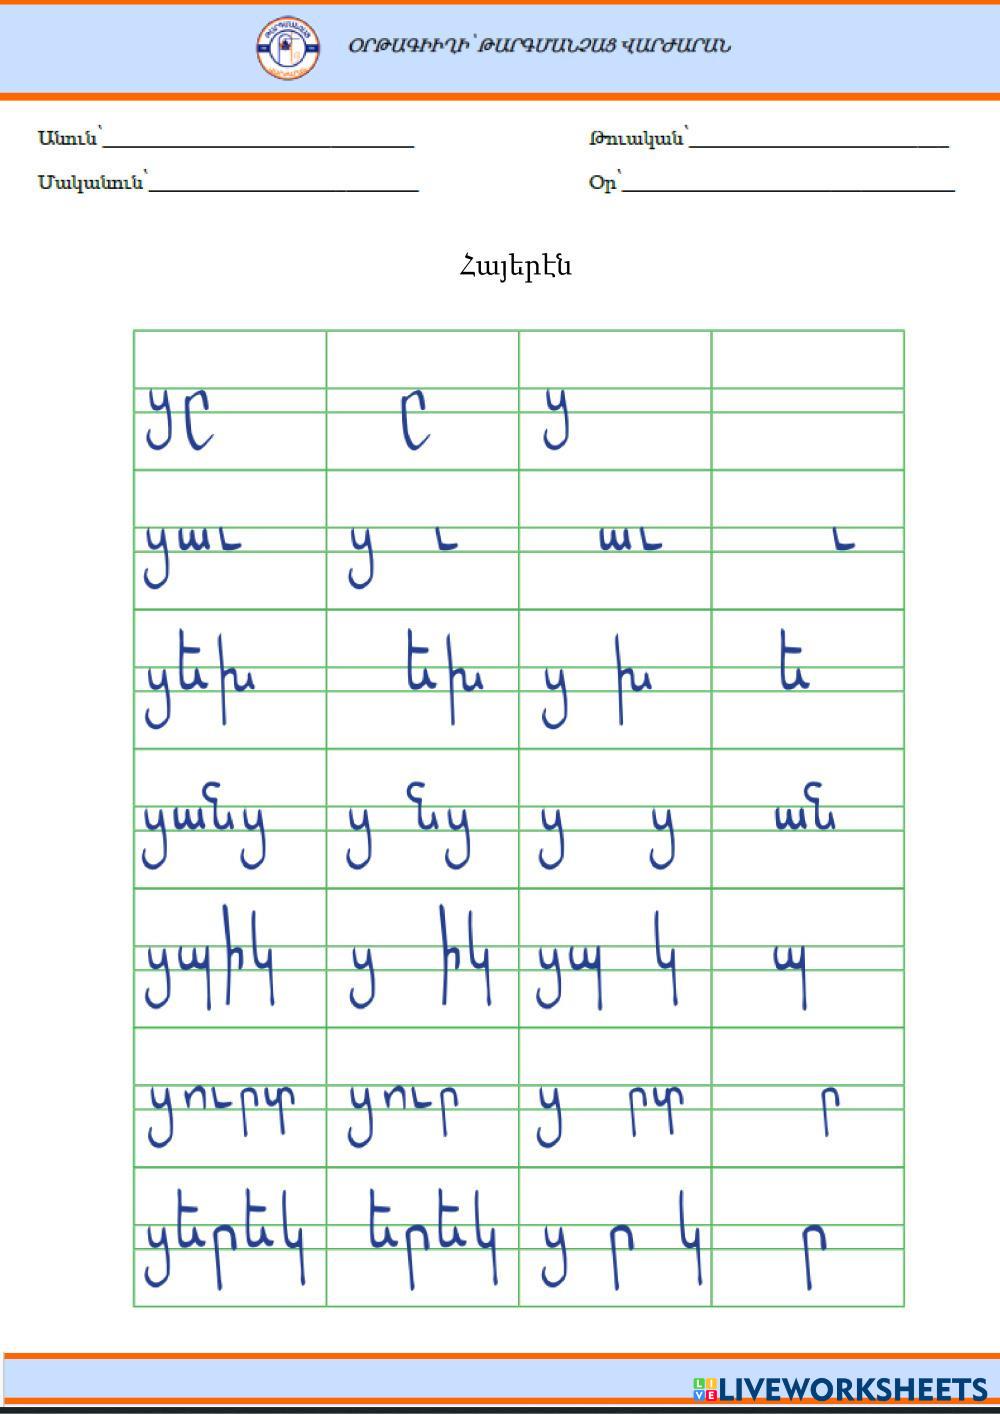 ՕՐԹԱԳԻՒՂԻ՝ ԹԱՐԳՄԱՆՉԱՑ ՎԱՐԺԱՐԱՆ
Անուն՝ Թուական՝
Մականուն՝ Օր՝
Հայերէն
յը ը յ
յաւ յ ւ աւ ւ
յեխ եխ յ խ ե
յանյ յ նյ յ յ ան
յապիկ յ իկ յապ կ ապ
յուրտ յուր յ րտ ր
յերեկ երեկ յ ր կ ր
LIVEWORKSHEETS